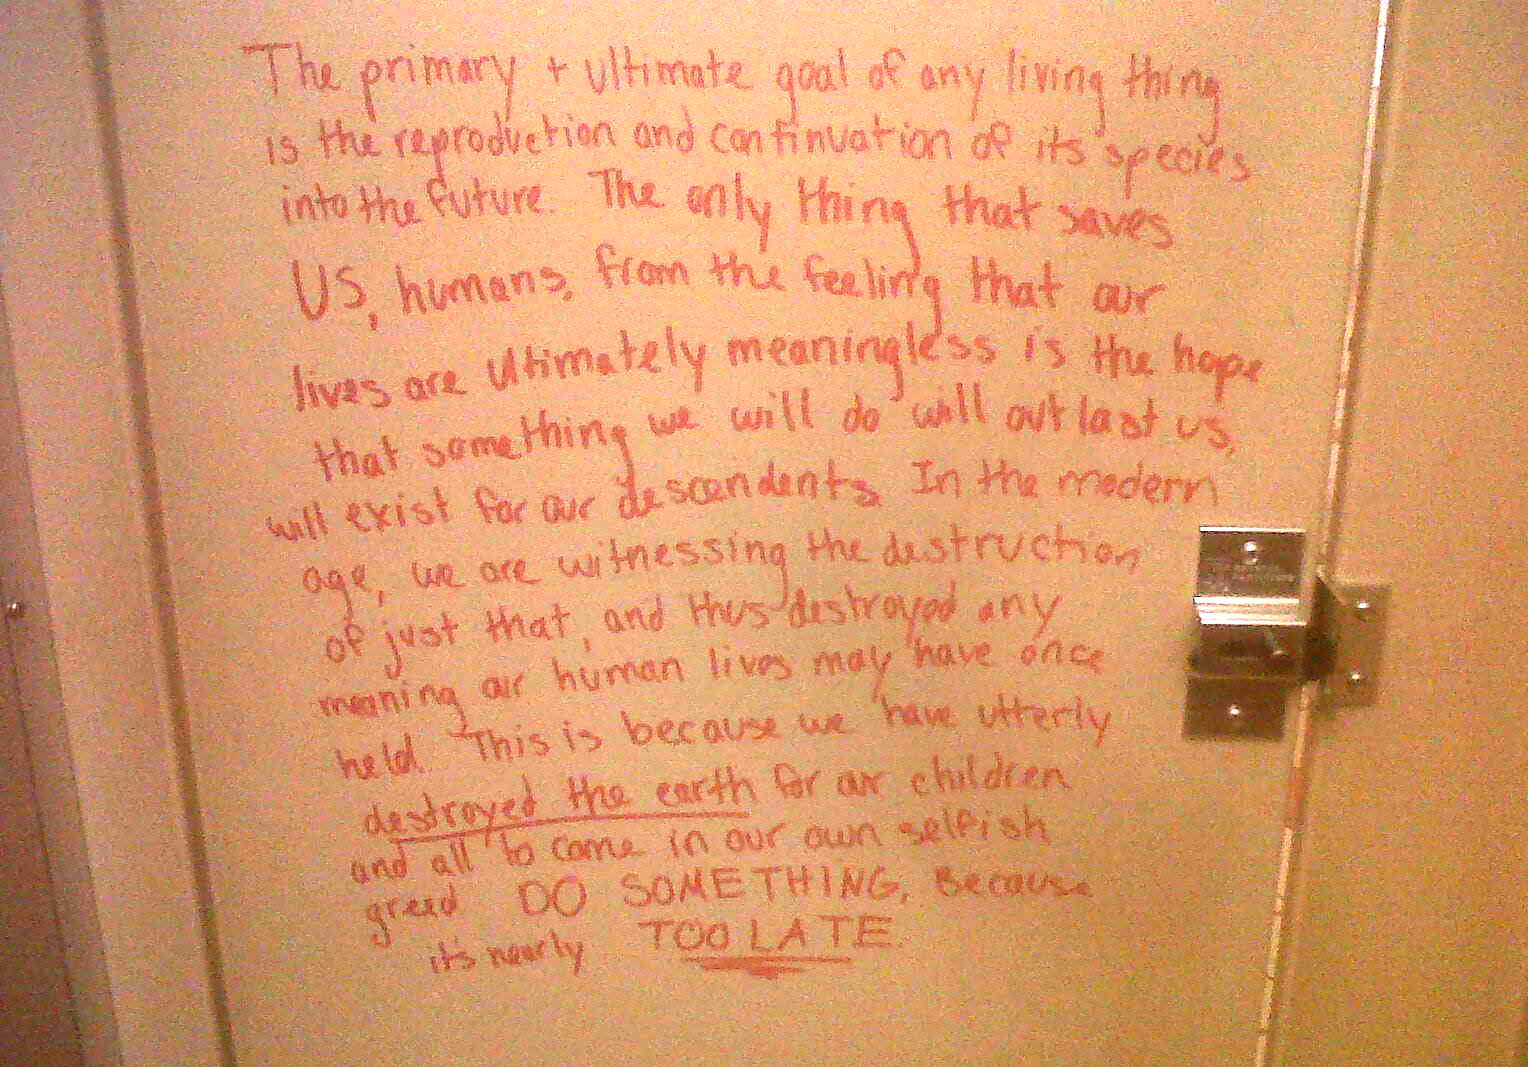 The primary + ultimate goal of any living thing
is the reproduction and continuation of its species
into the future. The only thing that saves
US, humans, from the feeling that our
lives are ultimately meaningless is the hope
that something we will do will outlast us,
will exist for our descendents. In the modern
age, we are witnessing the destruction
of just that, and thus destroyed any
meaning our human lives may have once
held. This is because we have utterly
destroyed the earth for our children
and all to come in our own selfish
greed DO SOMETHING, Because
it's nearly TOO LATE.